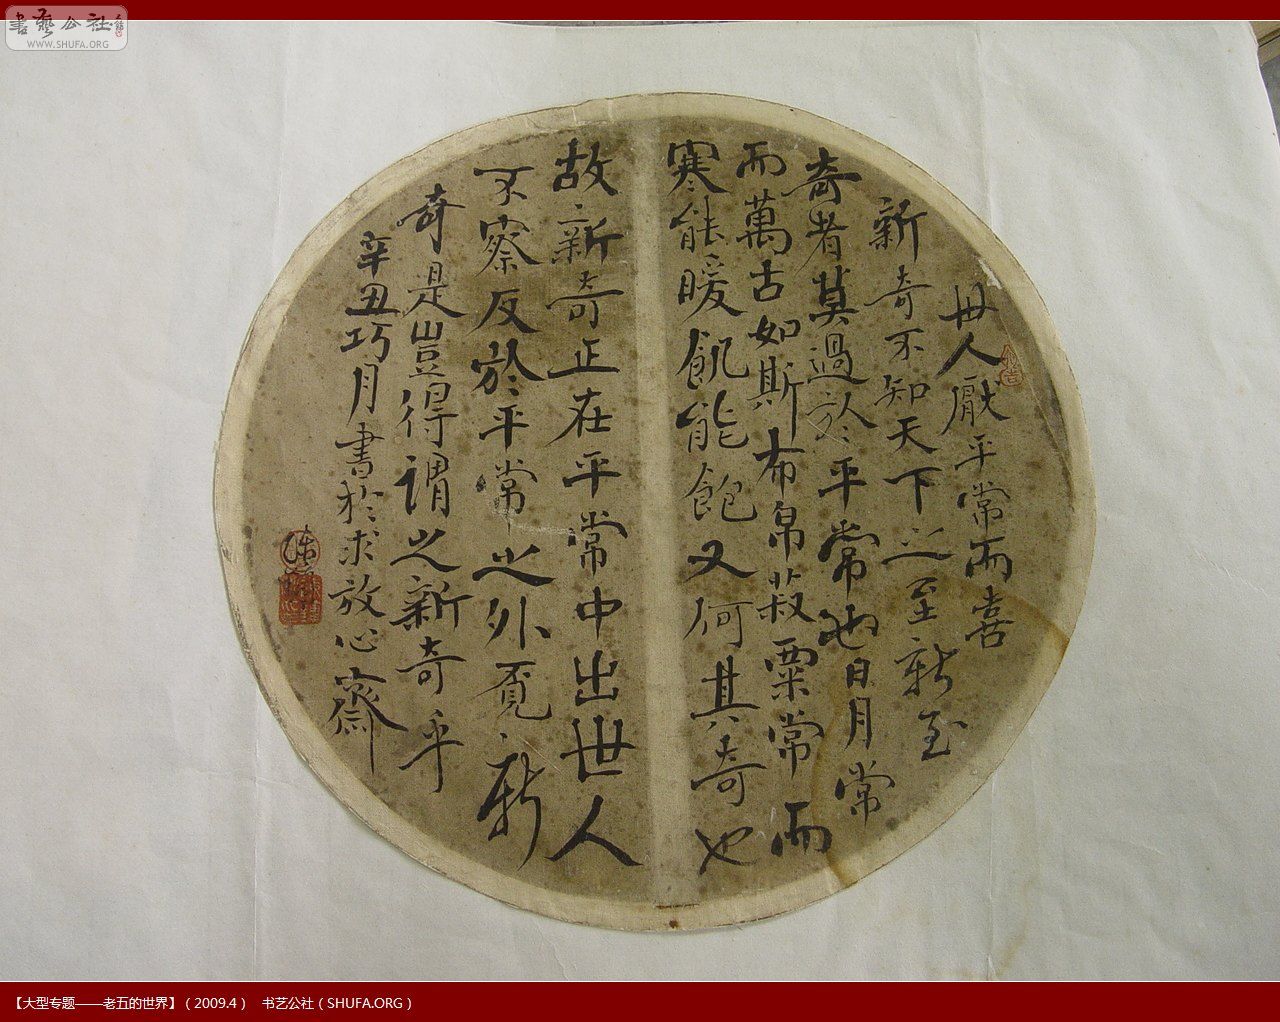 書藝公社
WWW.SHUFA.ORG
世人厭平常而喜
新奇不知天下之至新至
奇者莫過於平常也日月常
而萬古如斯布帛菽粟常而
寒能暖飢能飽又何其奇也
故新奇正在平常中出世人
不察反於平常之外覓新
奇是豈得謂之新奇乎
辛丑巧月書於求放心齋
【大型专题——老五的世界】（2009.4） 书艺公社（SHUFA.ORG）